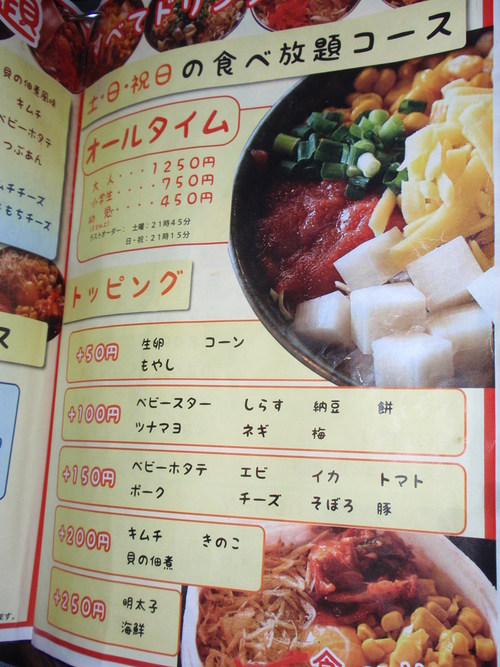 題
すべてドリン
土・日・祝日の食べ放題コース
貝の佃煮風味
キムチ
ベビーホタテ
つぶあん
ムチチーズ
もちチーズ
オールタイム
大人・・・・1250円
小学生・・・・750円
幼児・・・・450円
ラストオーダー： 土曜：21時45分
日・祝：21時15分
トッピング
ス
+50円 生卵 コーン
もやし
+100円 ベビースター しらす 納豆 餅
ツナマヨ ネギ 梅
+150円 ベビーホタテ エビ イカ トマト
ポーク チーズ そぼろ 豚
+200円 キムチ きのこ
貝の佃煮
+250円 明太子
海鮮
ます。
食